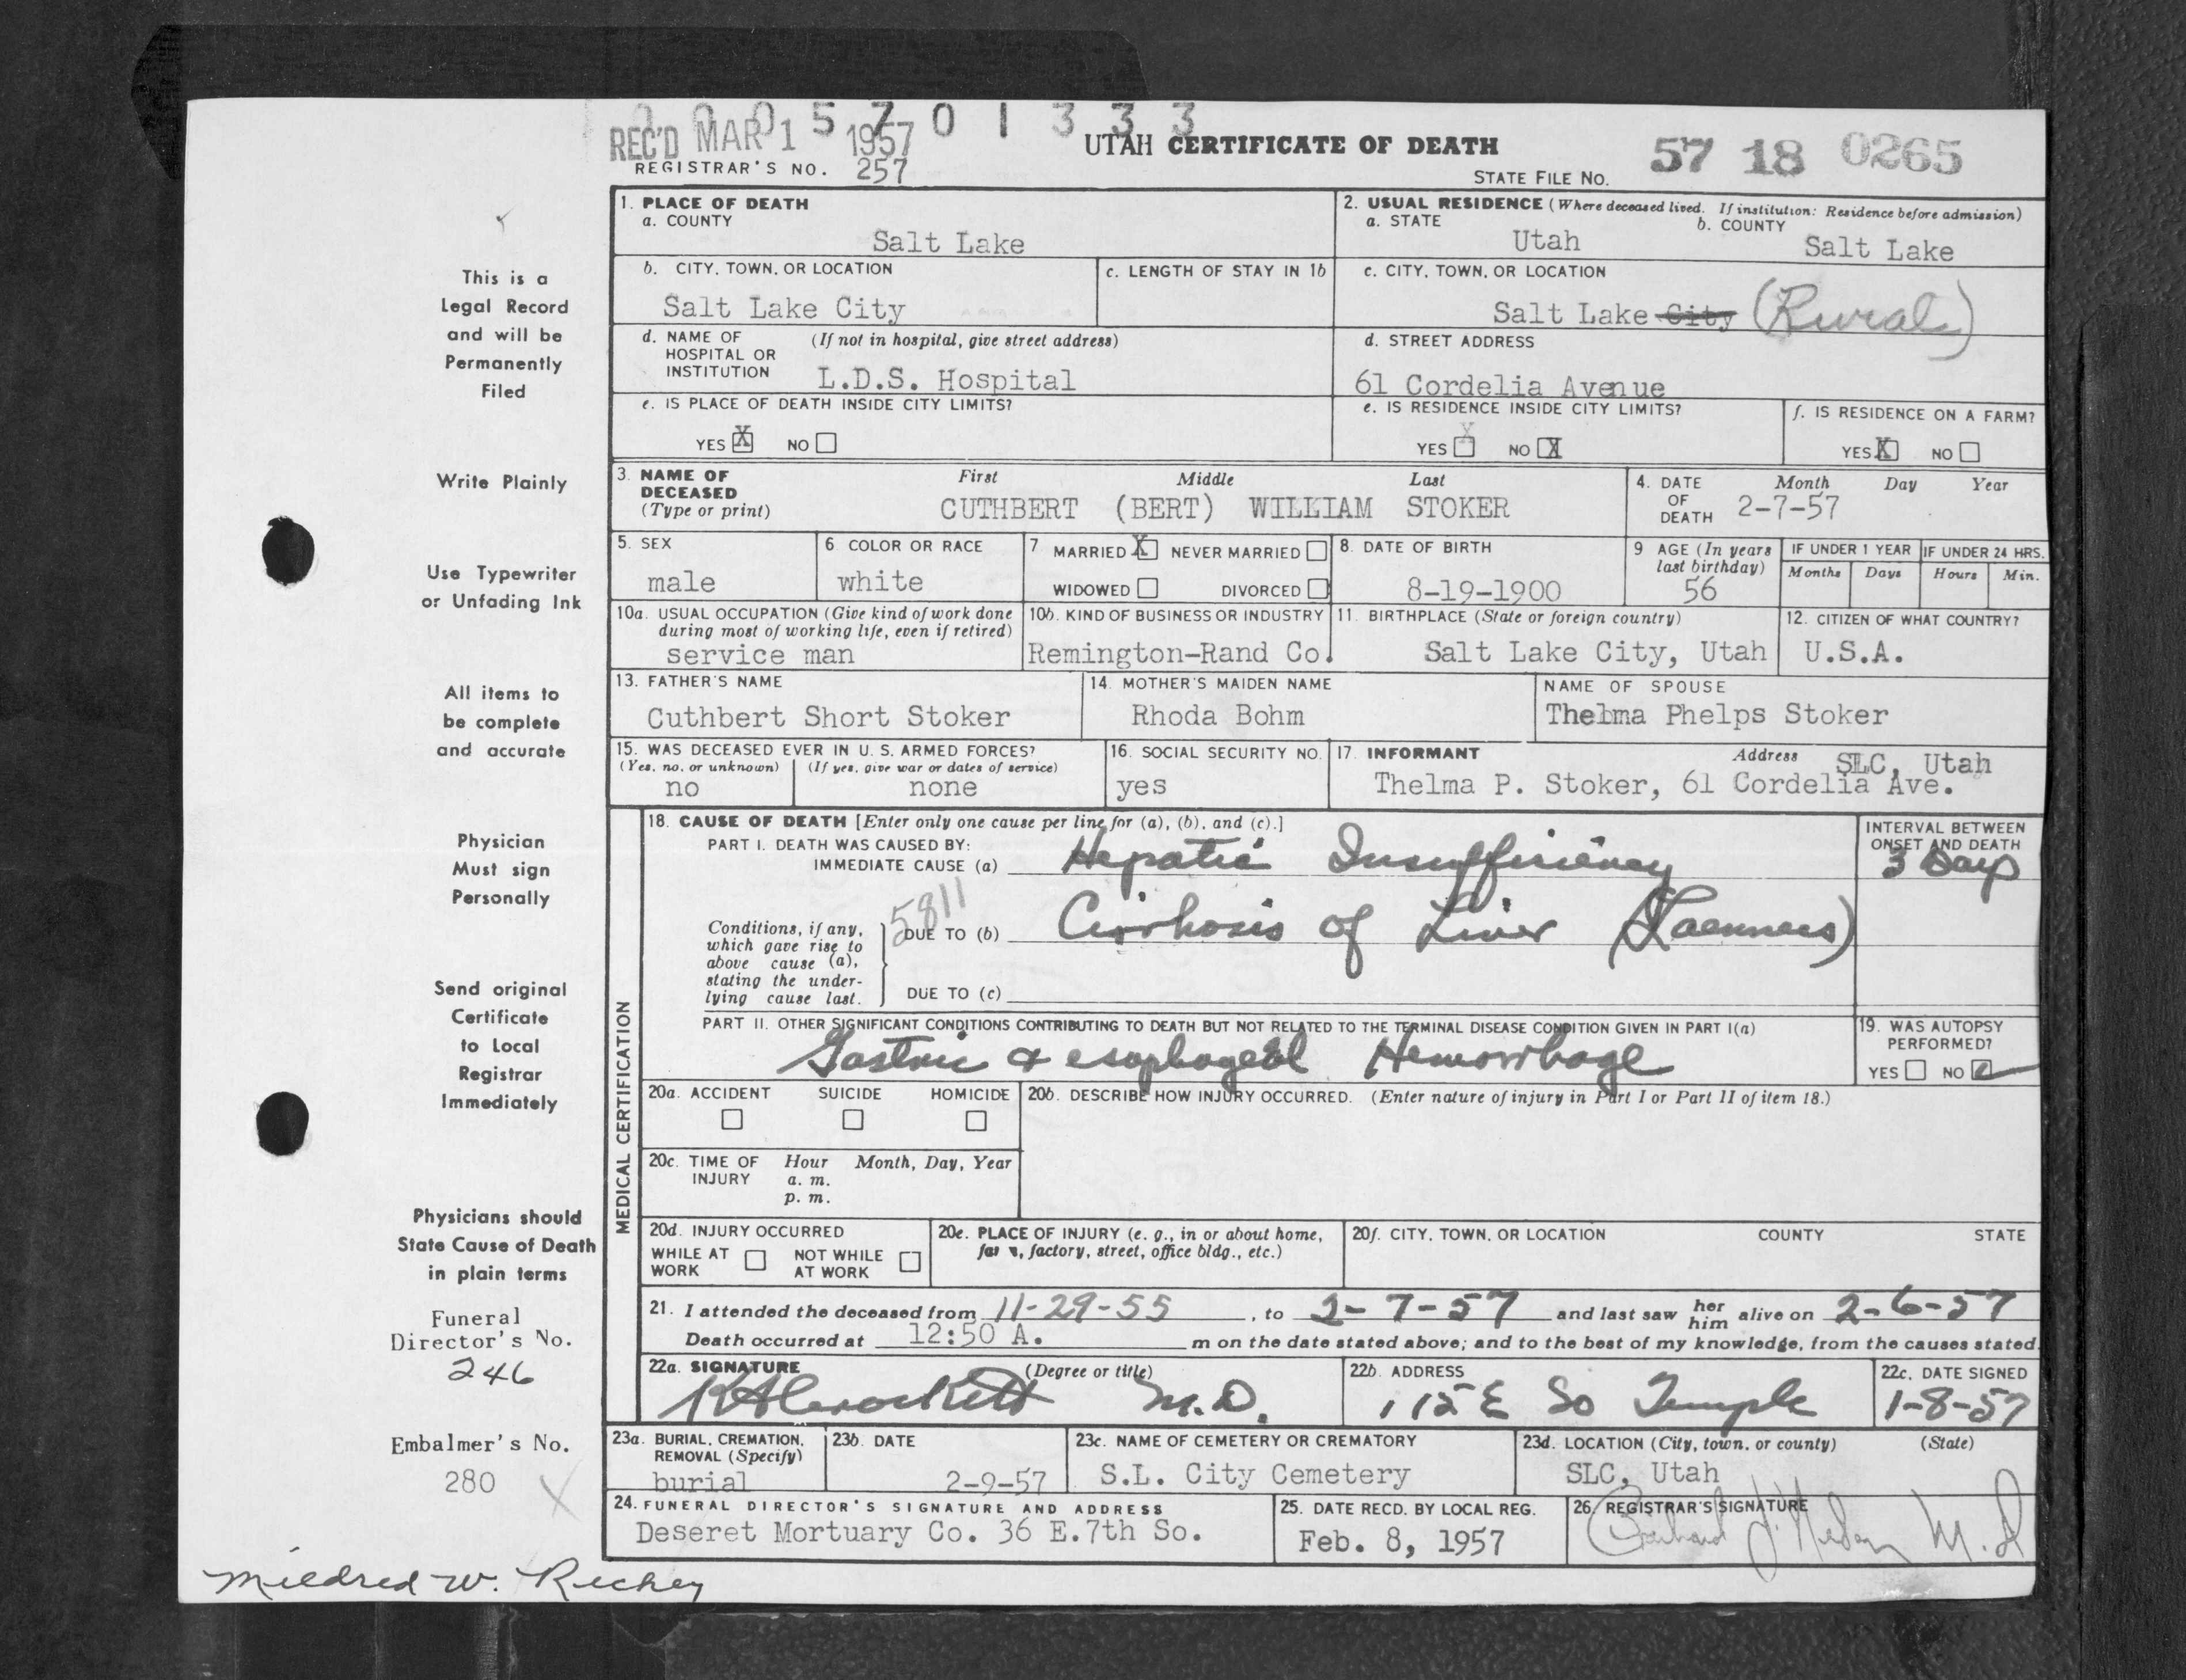 0005701333
REC'D MAR 1 1957
UTAH CERTIFICATE OF DEATH
57 18 0265
REGISTRAR'S NO. 257
STATE FILE NO.
This is a
Legal Record
and will be
Permanently
Filed
Write Plainly
Use Typewriter
or Unfading Ink
All items to
be complete
and accurate
Physician
Must sign
Personally
Send original
Certificate
to Local
Registrar
Immediately
Physicians should
State Cause of Death
in plain terms
Funeral
Director's No.
246
Embalmer's No.
280
1. PLACE OF DEATH
a. COUNTY
Salt Lake
2. USUAL RESIDENCE (Where deceased lived. If institution: Residence before admission)
a. STATE
Utah
b. COUNTY
Salt Lake
b. CITY, TOWN, OR LOCATION
Salt Lake City
c. LENGTH OF STAY IN 1b
c. CITY, TOWN, OR LOCATION
Salt Lake City (Rural)
d. NAME OF (If not in hospital, give street address)
HOSPITAL OR
INSTITUTION L.D.S. Hospital
d. STREET ADDRESS
61 Cordelia Avenue
e. IS PLACE OF DEATH INSIDE CITY LIMITS?
YES X NO
e. IS RESIDENCE INSIDE CITY LIMITS?
YES X NO X
f. IS RESIDENCE ON A FARM?
YES X NO
3. NAME OF
DECEASED
(Type or print)
First Middle Last
CUTHBERT (BERT) WILLIAM STOKER
4. DATE
OF
DEATH
Month Day Year
2-7-57
5. SEX
male
6 COLOR OR RACE
white
7 MARRIED X NEVER MARRIED
WIDOWED DIVORCED
8. DATE OF BIRTH
8-19-1900
9 AGE (In years
last birthday)
56
IF UNDER 1 YEAR
Months Days
IF UNDER 24 HRS.
Hours Min.
10a. USUAL OCCUPATION (Give kind of work done
during most of working life, even if retired)
service man
10b. KIND OF BUSINESS OR INDUSTRY
Remington-Rand Co.
11. BIRTHPLACE (State or foreign country)
Salt Lake City, Utah
12. CITIZEN OF WHAT COUNTRY?
U.S.A.
13. FATHER'S NAME
Cuthbert Short Stoker
14. MOTHER'S MAIDEN NAME
Rhoda Bohm
NAME OF SPOUSE
Thelma Phelps Stoker
15. WAS DECEASED EVER IN U. S. ARMED FORCES?
(Yes, no, or unknown) (If yes, give war or dates of service)
no none
16. SOCIAL SECURITY NO.
yes
17. INFORMANT Address SLC, Utah
Thelma P. Stoker, 61 Cordelia Ave.
MEDICAL CERTIFICATION
18. CAUSE OF DEATH [Enter only one cause per line for (a), (b), and (c).]
PART I. DEATH WAS CAUSED BY:
IMMEDIATE CAUSE (a) Hepatic Insufficiency
INTERVAL BETWEEN
ONSET AND DEATH
3 Days
5811
Conditions, if any,
which gave rise to
above cause (a),
stating the under-
lying cause last.
DUE TO (b) Cirrhosis of Liver (Laennecs)
DUE TO (c)
PART II. OTHER SIGNIFICANT CONDITIONS CONTRIBUTING TO DEATH BUT NOT RELATED TO THE TERMINAL DISEASE CONDITION GIVEN IN PART I(a)
Gastric & esophageal Hemorrhage
19. WAS AUTOPSY
PERFORMED?
YES NO
20a. ACCIDENT SUICIDE HOMICIDE
20b. DESCRIBE HOW INJURY OCCURRED. (Enter nature of injury in Part I or Part II of item 18.)
20c. TIME OF Hour Month, Day, Year
INJURY a. m.
p. m.
20d. INJURY OCCURRED
WHILE AT NOT WHILE
WORK AT WORK
20e. PLACE OF INJURY (e. g., in or about home,
farm, factory, street, office bldg., etc.)
20f. CITY, TOWN, OR LOCATION COUNTY STATE
21. I attended the deceased from 11-29-55, to 2-7-57 and last saw her him alive on 2-6-57
Death occurred at 12:50 A. m on the date stated above; and to the best of my knowledge, from the causes stated.
22a. SIGNATURE (Degree or title)
Crockett M.D.
22b. ADDRESS
115 E So Temple
22c. DATE SIGNED
1-8-57
23a. BURIAL, CREMATION,
REMOVAL (Specify)
burial
23b. DATE
2-9-57
23c. NAME OF CEMETERY OR CREMATORY
S.L. City Cemetery
23d. LOCATION (City, town, or county) (State)
SLC, Utah
24. FUNERAL DIRECTOR'S SIGNATURE AND ADDRESS
Deseret Mortuary Co. 36 E.7th So.
25. DATE RECD. BY LOCAL REG.
Feb. 8, 1957
26. REGISTRAR'S SIGNATURE
M.D
Mildred W. Richey